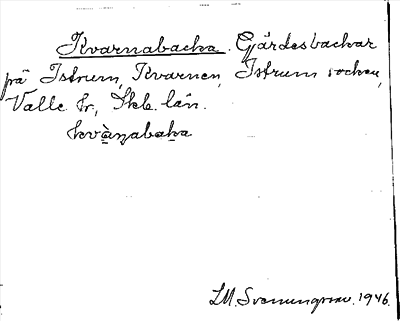 Kvarnabacka. Gärdesbackar
på Istrum, Kvarnen, Istrum socken,
Valle hr, Skb. län.
kvàṇabaka
LM. Svenungsson. 1946.